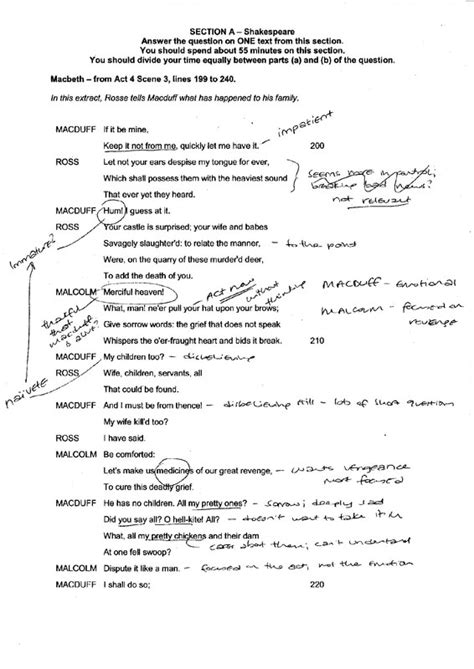 SECTION A – Shakespeare
Answer the question on ONE text from this section.
You should spend about 55 minutes on this section.
You should divide your time equally between parts (a) and (b) of the question.
Macbeth – from Act 4 Scene 3, lines 199 to 240.
In this extract, Rosse tells Macduff what has happened to his family.
MACDUFF If it be mine,
impatient
Keep it not from me, quickly let me have it. 200
ROSS Let not your ears despise my tongue for ever,
Which shall possess them with the heaviest sound
That ever yet they heard.
seems more
breaking bad news?
not relevant
MACDUFF Hum! I guess at it.
ROSS Your castle is surprised; your wife and babes
Savagely slaughter'd: to relate the manner, – to the point
Were, on the quarry of these murder'd deer,
To add the death of you.
Immature?
MALCOLM Merciful heaven! Act now without thinking
MACDUFF – Emotional
What, man! ne'er pull your hat upon your brows;
MALCOLM – focused on revenge
Give sorrow words: the grief that does not speak
Whispers the o'er-fraught heart and bids it break. 210
that macduff
MACDUFF My children too? – disbelieving
ROSS Wife, children, servants, all
That could be found.
naivete
MACDUFF And I must be from thence! – disbelieving still – lots of short question
My wife kill'd too?
ROSS I have said.
MALCOLM Be comforted:
Let's make us medicines of our great revenge, – wants vengeance
most focused
To cure this deadly grief.
MACDUFF He has no children. All my pretty ones? – sorrow; deeply sad
Did you say all? O hell-kite! All? – doesn't want to take it in
What, all my pretty chickens and their dam
cares about them; can't understand
At one fell swoop?
MALCOLM Dispute it like a man. – focused on the act, not the emotion
MACDUFF I shall do so; 220